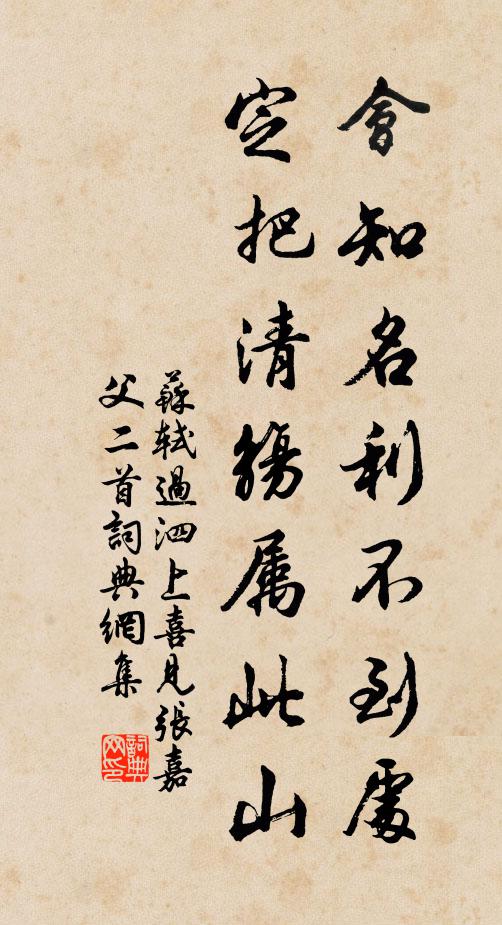 會知名利不到處
定把清觴属此山
蘇軾過泗上喜見張嘉
父二首詞典網集
詞典
网印